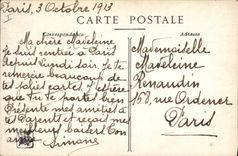 Paris, 3 Octobre 1913
CARTE POSTALE
Correspondance
Adresse
Ma chère Madeleine
je suis rentrée à Paris
depuis lundi soir. Je te
remercie beaucoup de
tes jolies cartes. J'espère
que tu te portes bien
mes amitiés à
tes Parents et reçois mes
meilleurs baisers Ton
amie Simone
Mademoiselle
Madeleine
Renaudin
168, rue Ordener
Paris